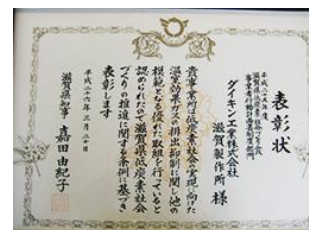 表彰状
平成二十五年度
滋賀県低炭素社会づくり賞
事業者行動計画書制度部門
ダイキン工業株式会社
滋賀製作所 様
貴事業所は低炭素社会の実現に向けた
温室効果ガスの排出抑制に関し他の
模範となる優れた取組を行っていると
認められたので滋賀県低炭素社会
づくりの推進に関する条例に基づき
表彰します
平成二十六年三月二十日
滋賀県知事 嘉田由紀子